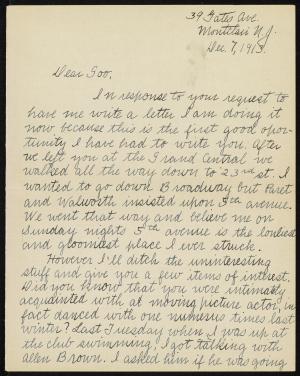 39 Gates Ave.
Montclair N.J.
Dec 7, 1913.
Dear Goo,
In response to your request to
have me write a letter I am doing it
now, because this is the first good opor-
tunity I have had to write you. After
we left you at the Grand Central we
walked all the way down to 23rd st. I
wanted to go down Broadway but Paret
and Walworth insisted upon 5th avenue.
We went that way and believe me on
Sunday nights 5th avenue is the lonliest
and gloomiest place I ever struck.
However I'll ditch the uninteresting
stuff and give you a few items of interest.
Did you know that you were intimately
acquainted with at moving picture actor, in
fact danced with one numerus times last
winter? Last Tuesday when I was up at
the club swimming, I got talking with
Allen Brown. I asked him if he was going